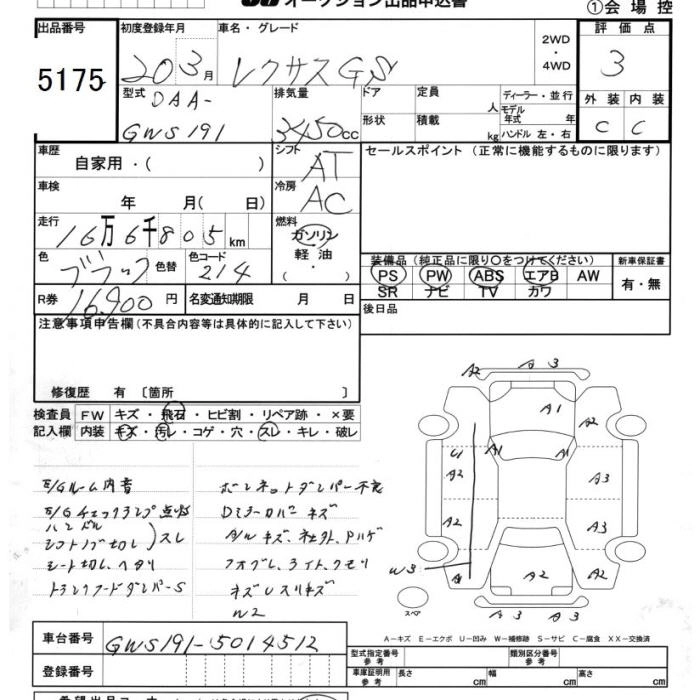 オークション出品申込書
①会場控
出品番号 初度登録年月 車名・グレード 2WD・4WD 評価点
5175 20 3月 レクサスGS 3
型式 DAA- 排気量 ドア 定員 人 ディーラー・並行 外装 内装
GWS191 3450cc 形状 積載 kg モデル年式 年 ハンドル 左・右 C C
車歴 自家用・( ) シフト AT セールスポイント(正常に機能するものに限ります)
車検 年 月( 日) 冷房 AC
走行 16万6千805km 燃料 ガソリン
軽油・( )
色 ブラック 色替 色コード 214 装備品(純正品に限り○をつけてください) 新車保証書
PS PW ABS エアB AW 有・無
SR ナビ TV カワ
R券 16,900円 名変通知期限 月 日 後日品
注意事項申告欄(不具合内容等は具体的に記入して下さい)
修復歴 有〔箇所 〕
検査員記入欄 FW キズ・飛石・ヒビ割・リペア跡・×要
内装 キズ・汚レ・コゲ・穴・スレ・キレ・破レ
E/Gルーム内音
E/Gチェックランプ点灯
ハンドル
シフトノブ切レ)スレ
シート切レ、ヘタリ
トランクフードダンパーS
ボンネットダンパー不良
Dミラーカバーキズ
Aルキズ、社外、ハゲ
フォグレ、ライト、クモリ
キズUスリキズ
W2
A2 A3
A1 A2
U A1 A1
A2 A3
A2 A3
W3 A2 A2
A3 A3
スペア
A-キズ E-エクボ U-凹み W-補修跡 S-サビ C-腐食 XX-交換済
車台番号 GWS191-5014512
登録番号
型式指定番号 参考 類別区分番号 参考
車庫証明用 参考 長さ cm 幅 cm 高さ cm